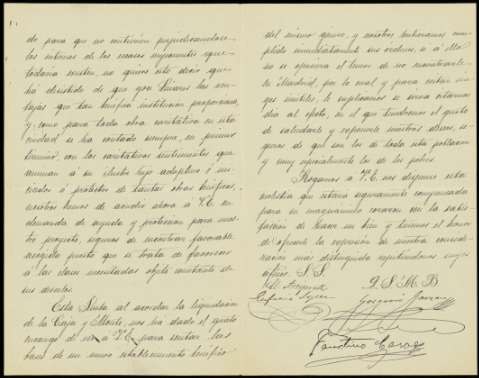 do para que no continúen perjudicándose
los intereses de los escasos imponentes que
todavía existen, no quiere esto decir que
ha desistido de que goce Linares las ven-
tajas que tan benéfica institución proporciona,
y, como para toda obra caritativa en esta
ciudad se ha contado siempre, en primer
término, con los caritativos sentimientos que
animan á su ilustre hijo adoptivo é ini-
ciador ó protector de tantas obras benéficas,
nosotros hemos de acudir ahora á V.E. en
demanda de ayuda y protección para nues-
tro proyecto, seguros de encontrar favorable
acogida puesto que se trata de favorecer
á las clases necesitadas objeto constante de
sus desvelos.
Esta Junta al acordar la liquidación
de la Caja y Monte, nos ha dado el grato
encargo de ver á V.E. para sentar las
bases de un nuevo establecimiento benéfico
del mismo género, y nosotros hubiéramos cum-
plido inmediatamente sus órdenes, si á ello
no se opusiera el temor de no encontrarle
en Madrid, por lo cual y para evitar via-
jes inútiles, le suplicamos se sirva señalarnos
día al efecto, en el que tendremos el gusto
de saludarle y exponerle nuestros deseos, se-
guros de que son los de toda esta población
y muy especialmente los de los pobres.
Rogamos á V.E. nos dispense esta
molestia que estará seguramente compensada
para su magnánimo corazón con la satis-
facción de hacer un bien y tenemos el honor
de ofrecerle la expresión de nuestra conside-
ración más distinguida repitiéndonos suyos
affmos. S. S.
Q. S. M. B.
Faustino Caro